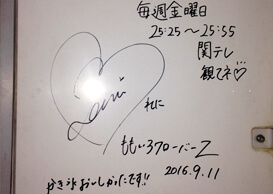 毎週金曜日
25:25～25:55
関テレ
観てネ♡
れに
ももいろクローバーZ
かき氷おいしかったです!!
2016.9.11